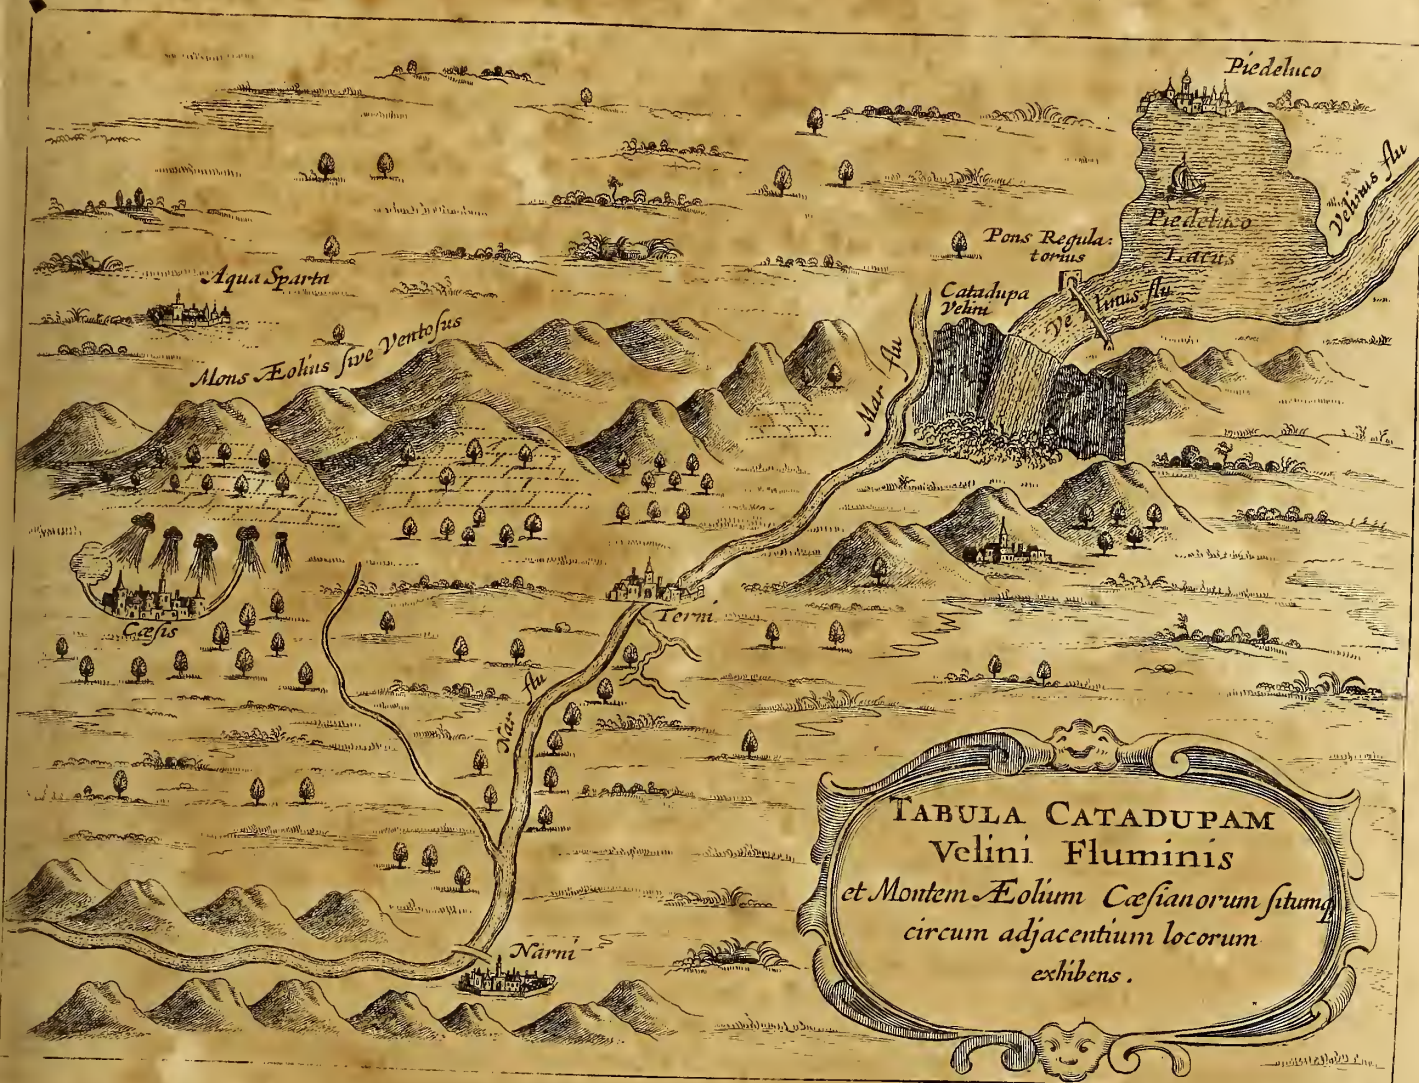 Piedeluco
Velinus flu
Piedeluco
Lacus
Pons Regula:
torius
Velinus flu
Catadupa
Velini
Aqua Sparta
Mons Æolius ſive Ventoſus
Mar flu
Cæſis
Terni
Nar flu
Narni
TABULA CATADUPAM
Velini Fluminis
et Montem Æolium Cæſianorum ſitumq
circum adjacentium locorum
exhibens.